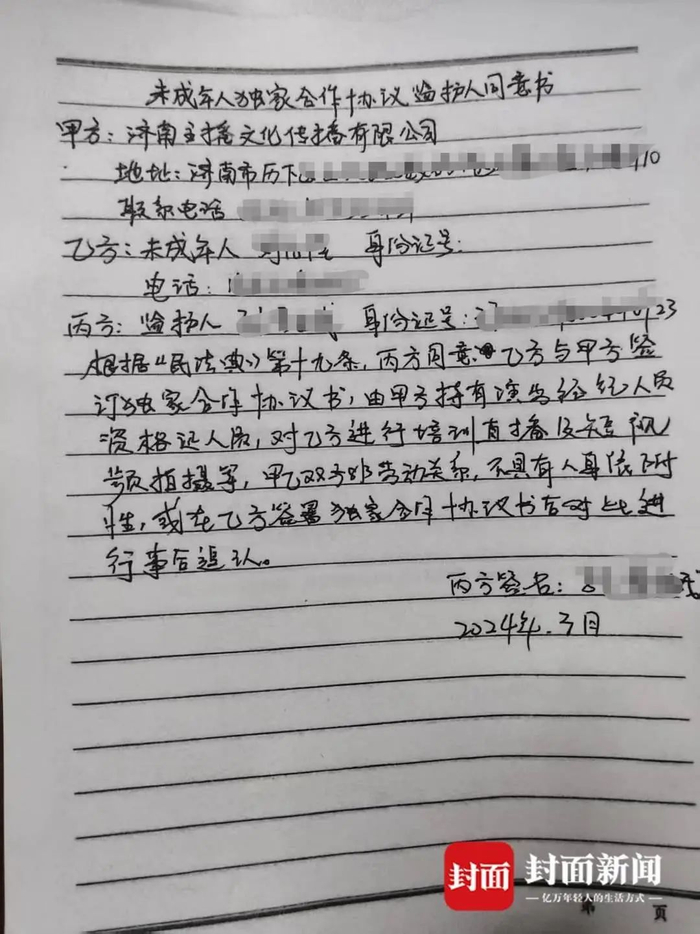 未成年人独家合作协议监护人同意书
甲方：济南主播文化传播有限公司
地址：济南市历下 10
联系电话
乙方：未成年人 身份证号：
电话：
丙方：监护人 身份证号：3 23
根据《民法典》第十九条，丙方同意 乙方与甲方签
订独家合作协议书，由甲方持有演出经纪人员
资格证人员，对乙方进行培训直播及短视
频拍摄等，甲乙双方非劳动关系，不具有人身依附
性，或在乙方签署独家合作协议书后对此进
行事后追认。
丙方签名：
2024年.3月
封面 封面新闻
亿万年轻人的生活方式
第 页